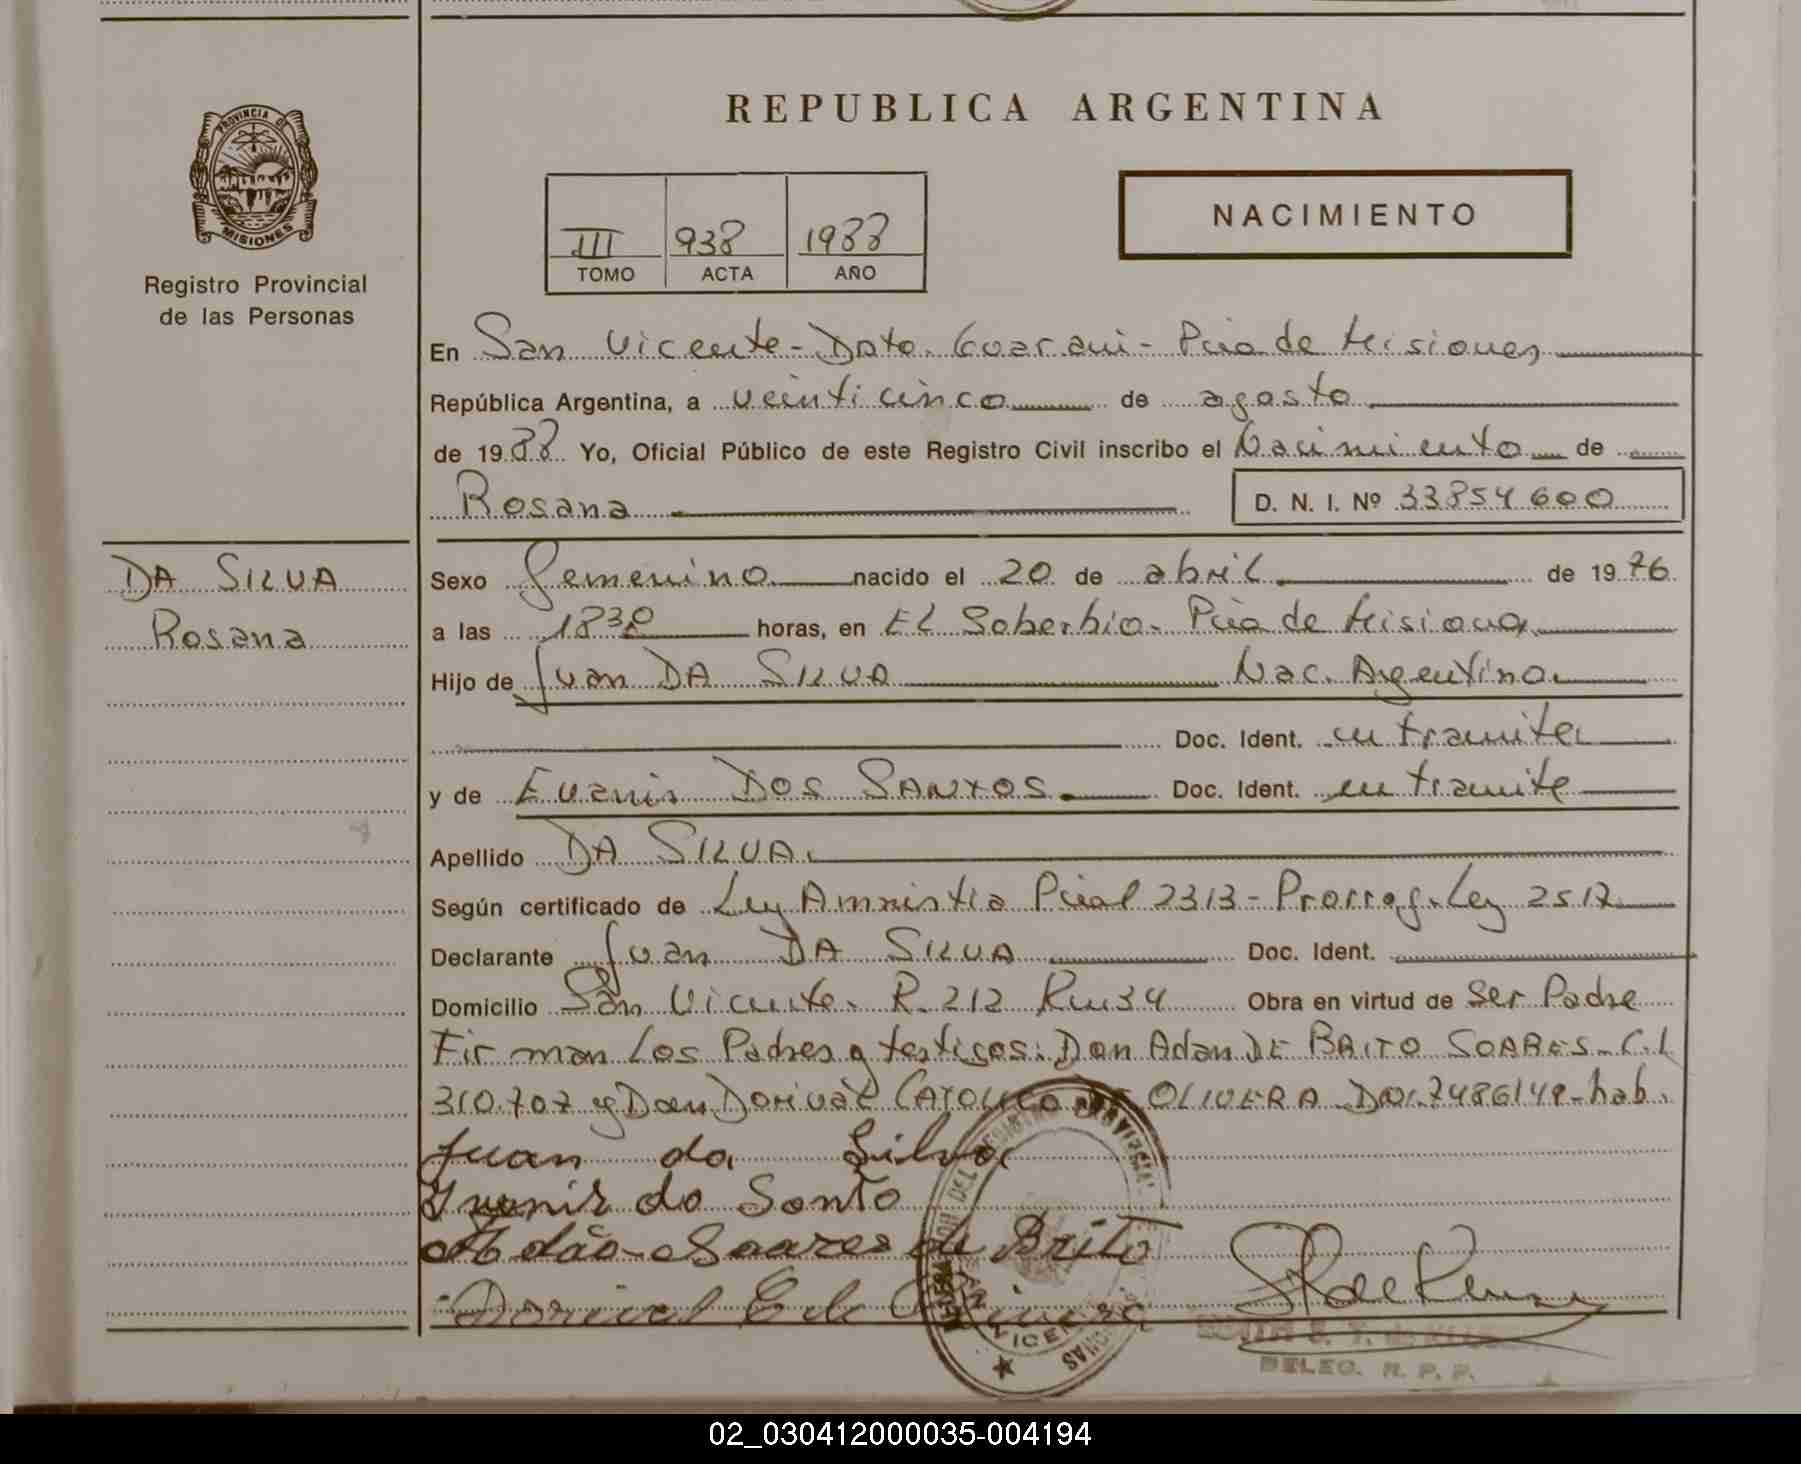 REPUBLICA ARGENTINA
PROVINCIA DE
MISIONES
Registro Provincial
de las Personas
NACIMIENTO
III 938 1988
TOMO ACTA AÑO
En San Vicente - Dpto. Guarani - Pcia de Misiones
República Argentina, a veinticinco de agosto
de 1988 Yo, Oficial Público de este Registro Civil inscribo el Nacimiento de
Rosana D. N. I. Nº 33854600
DA SILVA
Rosana
Sexo femenino nacido el 20 de abril de 1976
a las 18³⁰ horas, en El Soberbio - Pcia de Misiones
Hijo de Juan DA SILVA Nac. Argentino
Doc. Ident. en tramite
y de Evanir DOS SANTOS Doc. Ident. en tramite
Apellido DA SILVA
Según certificado de Ley Amnistia Pcial 2313 - Prorrog. Ley 2517
Declarante Juan DA SILVA Doc. Ident.
Domicilio San Vicente. R. 212 Km 34 Obra en virtud de Ser Padre
Firman Los Padres y testigos: Don Adan DE BRITO SOARES - C.I.
310.707 y Don Dorival DE OLIVERA DNI. 7486149 - hab.
Juan da Silva
do Santo
Adão Soares de Brito
Dorival E de
DELEG. R. P. P.
02_030412000035-004194